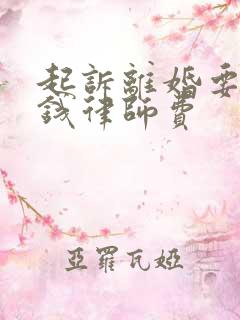 起訴離婚要
錢律師費
亞羅瓦婭